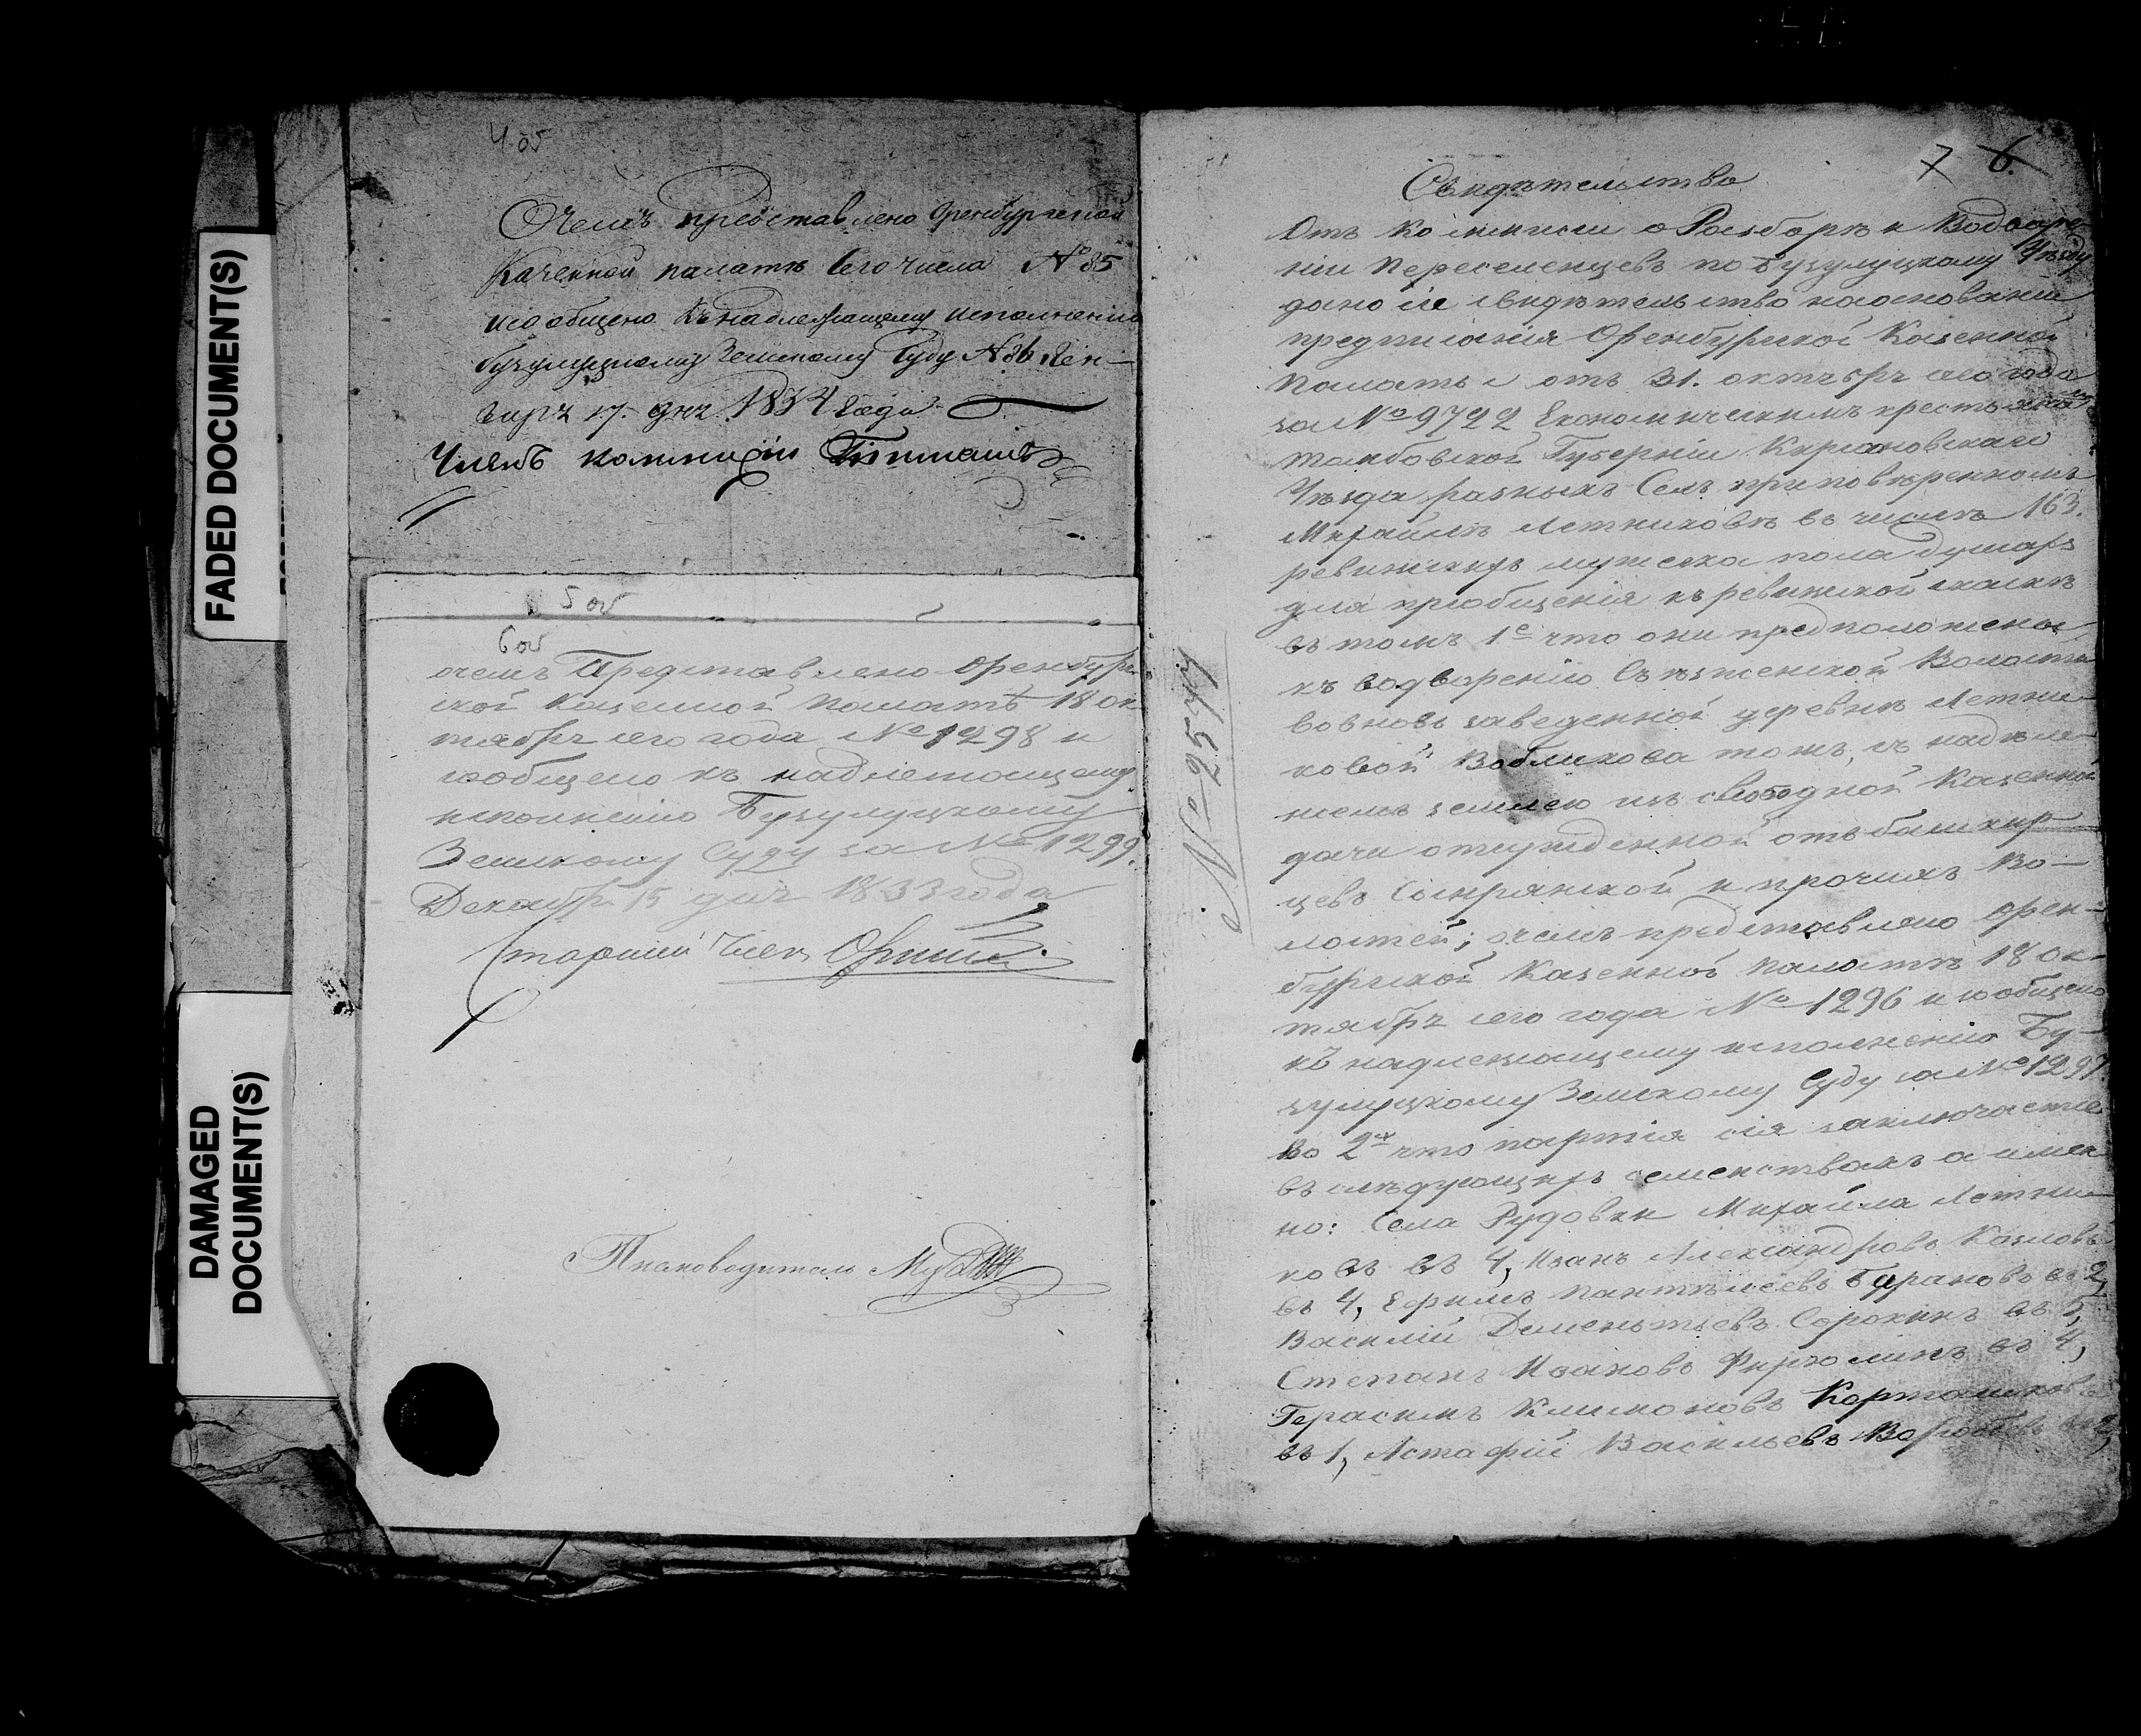 FADED DOCUMENT(S)
DAMAGED
DOCUMENT(S)
4 об
Очемъ представлено Оренбургской
Казенной палатѣ Сего числа № 85
и сообщено къ надлежащему исполненію
бузулуцкому Земскому Суду № 86 Ген-
варя 17. дня 1834 Года
Членъ коммиссіи
5 об
6 об
очемъ Представлено Оренбург-
ской Казенной Палатѣ 18 ок-
тября сего года № 1298 и
сообщено къ надлежащему
исполненію Бузулуцкому
Земскому Суду за № 1299.
Декабря 15 дня 1833 года
Старшій Член
Письмоводитель
№ 2577
7 6.
Свидѣтельство
Отъ Коммисіи о Разборѣ и Водворе
ніи Переселенцевъ по Бузулуцкому Уѣзду
дано сіе свидѣтельство на основаніи
предписанія Оренбургской Казенной
Палаты отъ 31. октября сего года
за № 9722 Економическимъ крестьянамъ
тамбовской Губерніи Кирсановскаго
Уѣзда разныхъ Селъ при повѣренномъ
Михайлѣ Летниковѣ въ числѣ 163.
ревизскихъ мужеска пола душахъ
для пріобщенія къ ревизской сказкѣ
въ томъ 1е что они предположены
къ водворенію Съѣзженской Волости
во вновь заведенной деревнѣ Летни-
ковой Вобликова тожъ, съ надѣле-
ніемъ землею изъ свободной Казенной
дачи отсужденной отъ башкир-
цевъ Сынрянской и прочихъ Во-
лостей; очемъ представлено Орен-
бургской Казенной палатѣ 18 ок-
тября сего года № 1296 и сообщено
къ надлежащему исполненію Бу-
зулуцкому Земскому Суду за № 1297.
Во 2х что партія сія заключается
въ слѣдующихъ семействахъ а имен
но: Села Рудовки Михайла Летни-
ковъ въ 4, Иванъ Александровъ Козловъ
въ 4, Ефимъ Пантѣлеевъ Бурановъ въ 2,
Василій Дементьевъ Сорокинъ въ 5,
Степанъ Ивановъ Фирюлинъ въ 4,
Герасимъ Климоновъ Картошковъ
въ 1, Астафій Васильевъ Воробьевъ въ 2,